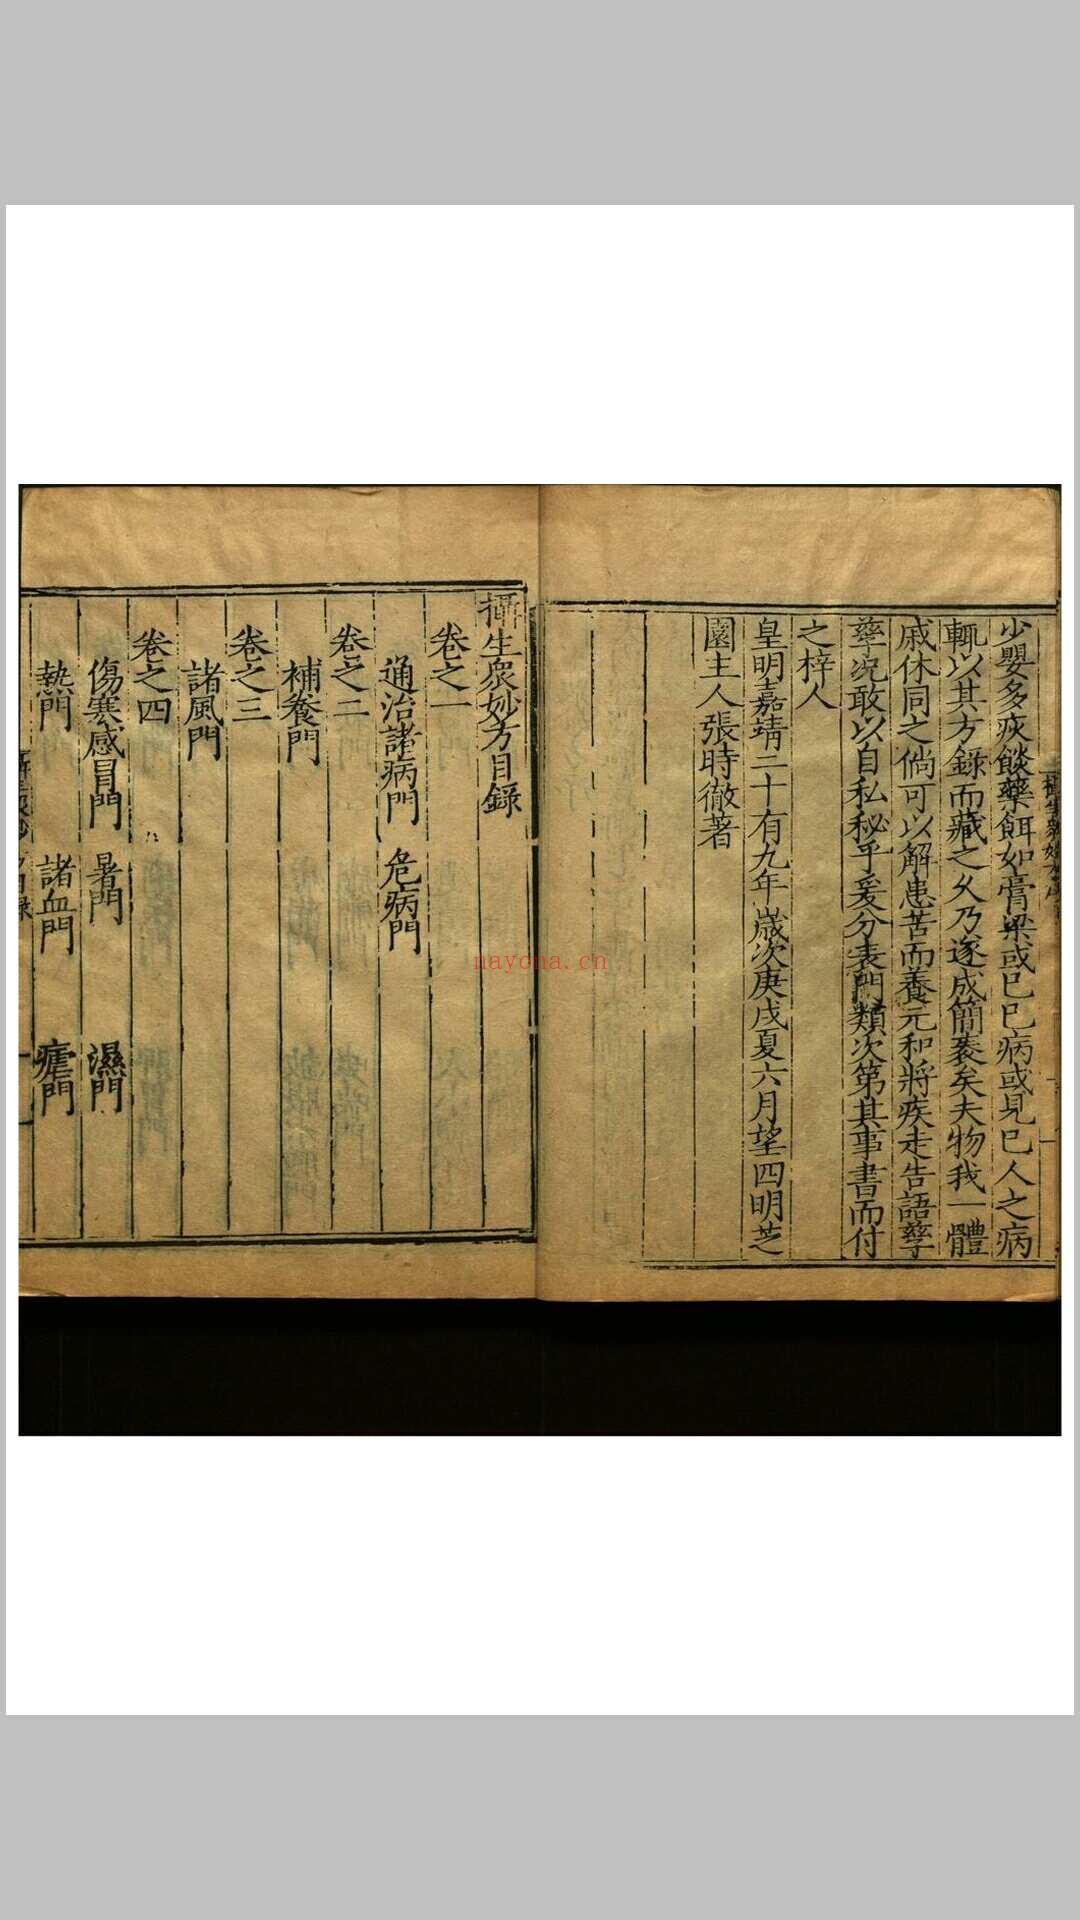 少嬰多疾餤藥餌如膏粱或已已病或見已人之病
輒以其方錄而藏之乆乃遂成簡袠矣夫物我一體
戚休同之倘可以解患苦而養元和將疾走告語孳
孳況敢以自私秘乎爰分表門類次第其事書而付
之梓人
皇明嘉靖二十有九年歲次庚戌夏六月望四明芝
園主人張時徹著
攝生眾妙方目錄
卷之一
通治諸病門 危病門
卷之二
補養門
卷之三
諸風門
卷之四
傷寒感冒門 暑門 濕門
熱門 諸血門 瘧門
nayona.cn